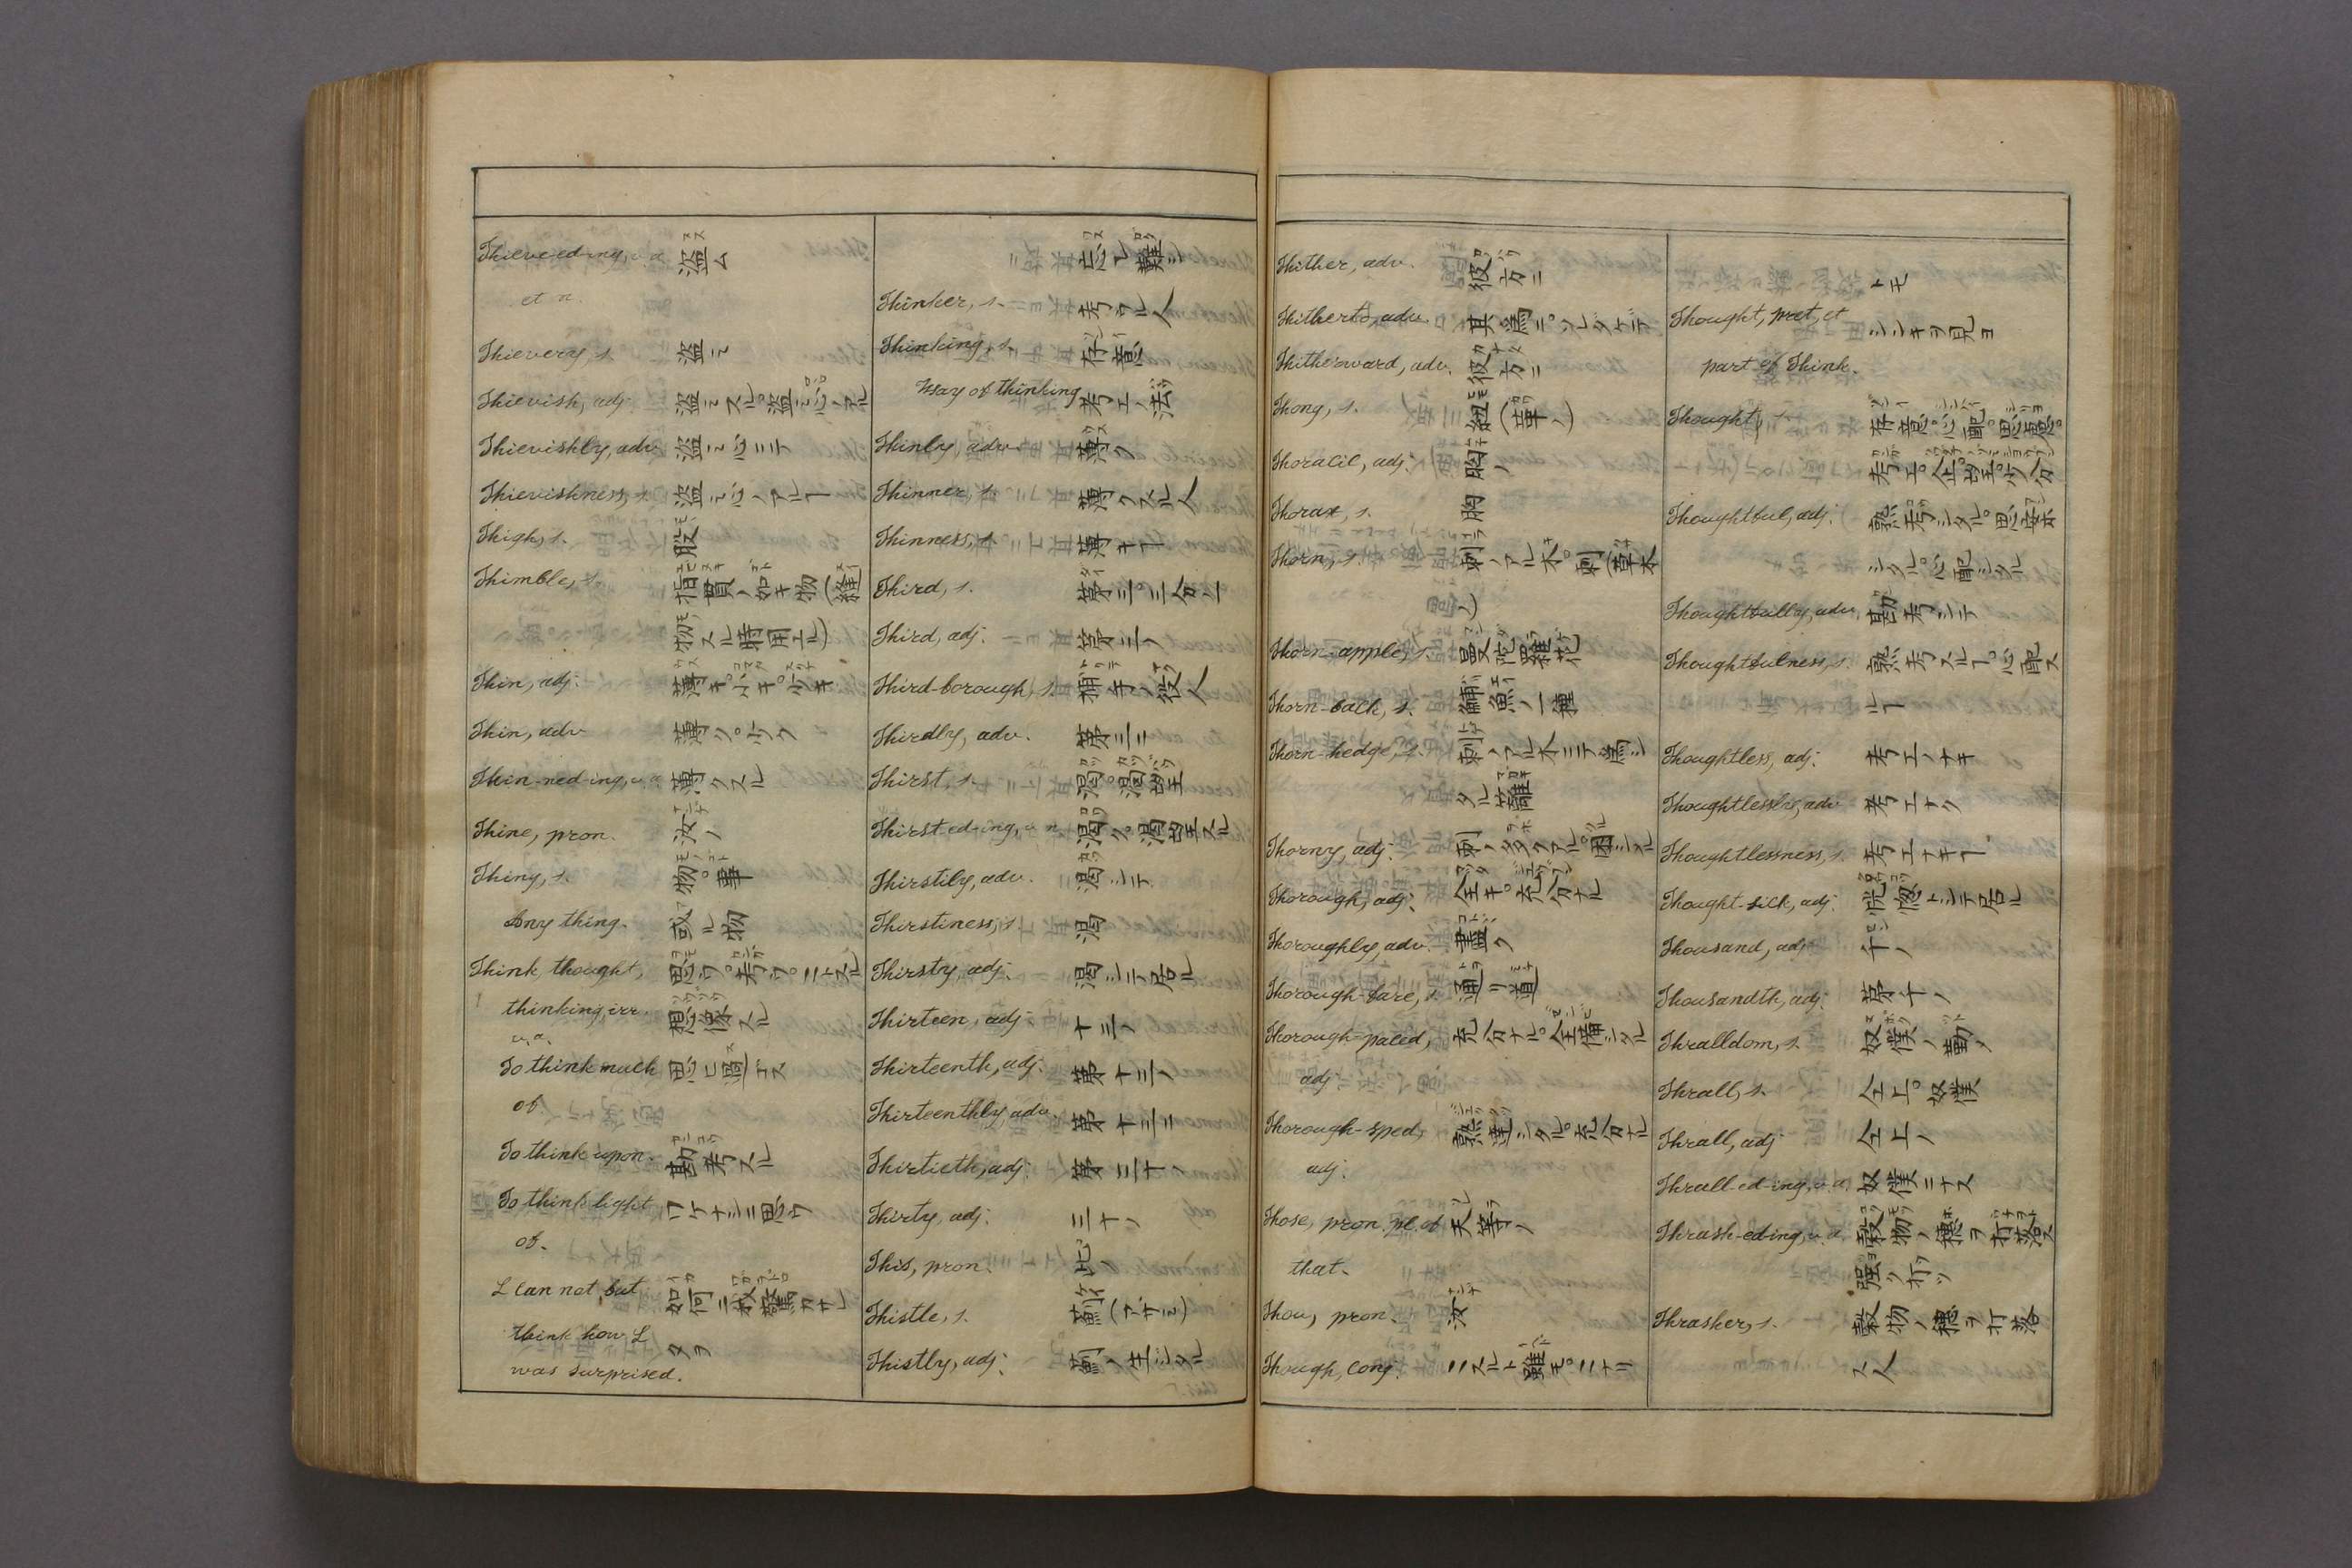 Thieve-ed-ing, v. a. 盗ム
et n.
Thievery, s. 盗ミ
Thievish, adj. 盗ミスル。盗ミ心ノアル
Thievishly, adv. 盗ミ心ニテ
Thievishness, s. 盗ミ心ノアルヿ
Thigh, s. 股
Thimble, s. 指貫ノ如キ物(縫
物スル時用エル)
Thin, adj. 薄キ。小キ。少キ
Thin, adv. 薄ク。少ク
Thin-ned-ing, v. a. 薄クスル
Thine, pron. 汝ノ
Thing, s. 物。事
Any thing. 或ル物
Think, thought, 思ウ。考ウ。ニトスル
thinking, irr. 想像スル
v. a.
To think much 思ヒ過ゴス
of
To think upon. 勘考スル
To think light ワケナシニ思ウ
of.
I can not but 如何ニ我驚カサレ
think how I タヲ
was surprised.
忘レ難シ
Thinker, s. 考ウル人
Thinking, s. 存意
Way of thinking 考エノ法
Thinly, adv. 薄ク
Thinner, s. 薄クスル人
Thinness, s. 薄キヿ
Third, s. 第三。三分一
Third, adj. 第三ノ
Third-borough, s. 捕手ノ役人
Thirdly, adv. 第三ニ
Thirst, s. 渇。渇望
Thirst-ed-ing, v. n. 渇ク。渇望スル
Thirstily, adv. 渇シテ
Thirstiness, s. 渇
Thirsty, adj. 渇シテ居ル
Thirteen, adj. 十三ノ
Thirteenth, adj. 第十三ノ
Thirteenthly, adv. 第十三ニ
Thirtieth, adj. 第三十ノ
Thirty, adj. 三十ノ
This, pron. 此ノ
Thistle, s. 薊(アザミ)
Thistly, adj. 薊ノ生ジタル
Thither, adv. 彼方ニ
Thitherto, adv. 其為ニ。ソレダケデ
Thitherward, adv. 彼方ニ
Thong, s. 紐(革ノ)
Thoracic, adj. 胸ノ
Thorax, s. 胸
Thorn, s. 刺ノアル木。刺(草木
ノ)
Thorn-apple, s. 曼陀羅花
Thorn-back, s. 魚ノ一種
Thorn-hedge, s. 刺ノアル木ニテ為シ
タル籬
Thorny, adj. 刺ノ多クアル。困シル
Thorough, adj. 全キ。充分ナル
Thoroughly, adv. 盡ク
Thorough-fare, s. 通リ道
Thorough-paced, 充分ナル。全備シタル
adj.
Thorough-sped, 熟達シタル。充分ナル
adj.
Those, pron. pl. of 夫等ノ
that.
Thou, pron. 汝
Though, conj. ニスルト雖モ。ニナリ
トモ
Thought, pret, et シンキヲ見ヨ
part of Think.
Thought, s. 存意。心配。思慮。
考エ。企望。少分
Thoughtful, adj. 熟考シタル。思案
シタル。心配シタル
Thoughtfully, adv. 勘考シテ
Thoughtfulness, s. 熟考スルヿ。心配ス
ルヿ
Thoughtless, adj. 考エノナキ
Thoughtlessly, adv. 考エナク
Thoughtlessness, s. 考エナキヿ
Thought-sick, adj. 恍惚トシテ居ル
Thousand, adj. 千ノ
Thousandth, adj. 第千ノ
Thralldom, s. 奴僕ノ勤メ
Thrall, s. 仝上。奴僕
Thrall, adj. 仝上ノ
Thrall-ed-ing, v. a. 奴僕ニナス
Thrash-ed-ing, v. a. 穀物ノ穂ヲ打落ス
強ク打ツ
Thrasher, s. 穀物ノ穂ヲ打落
ス人